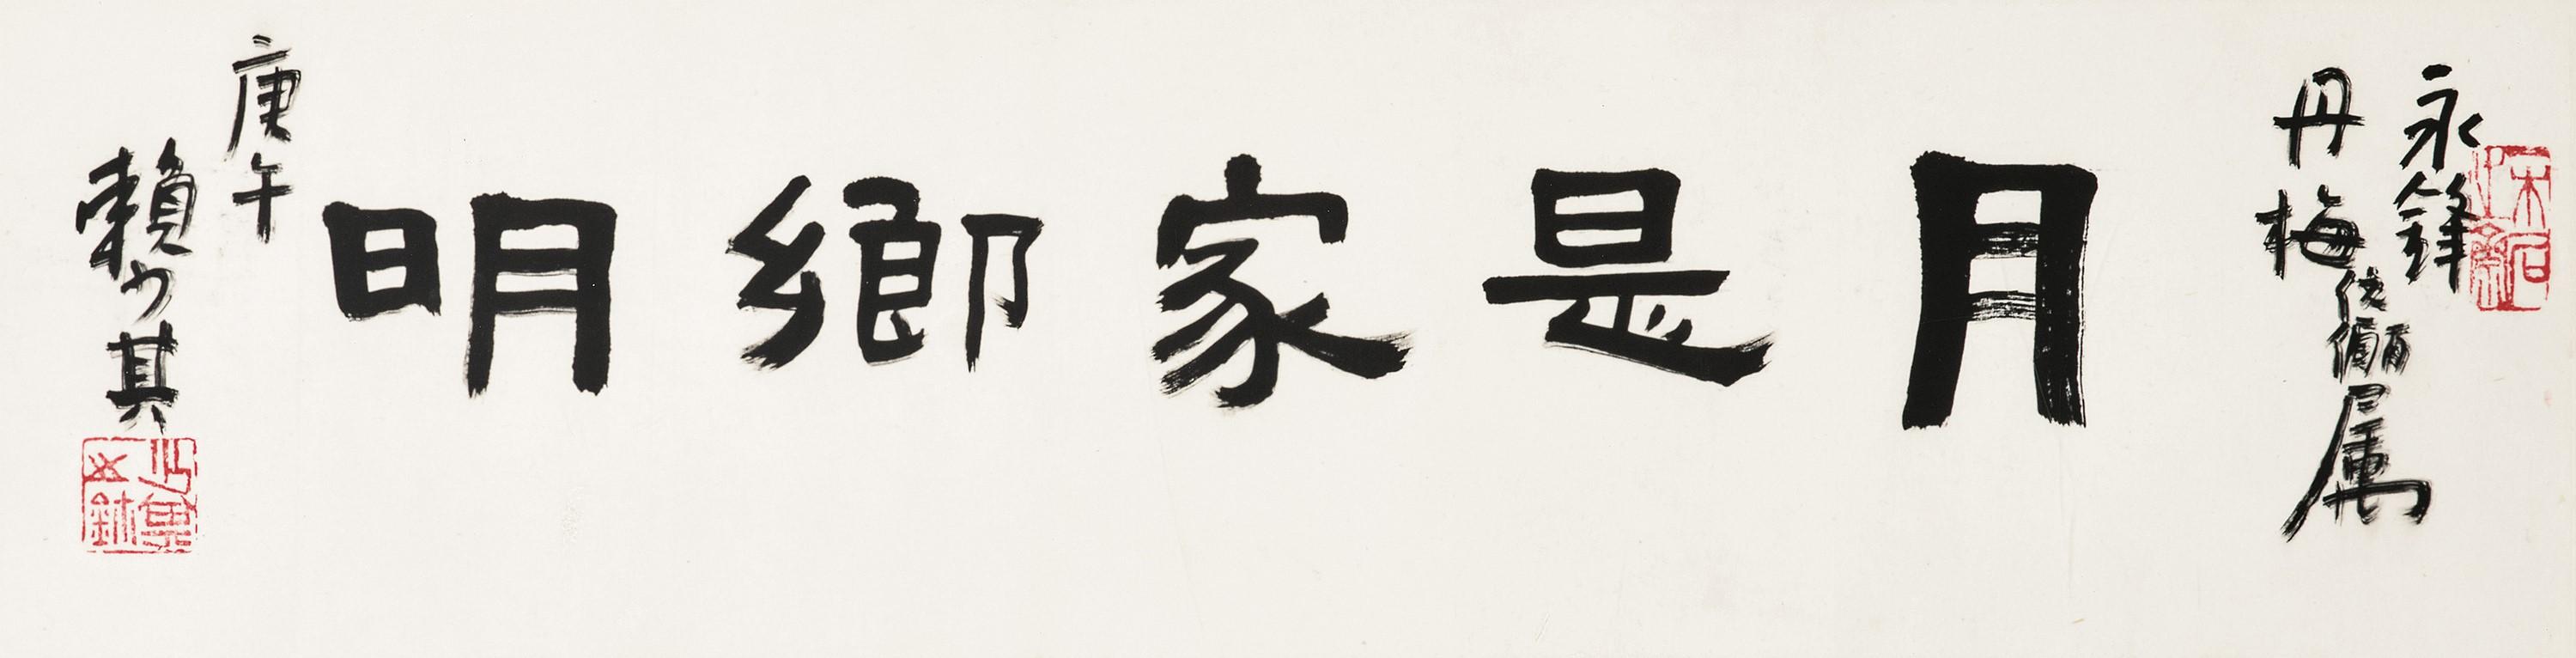 永鋒
丹梅伉儷属
月是家鄉明
庚午
賴少其